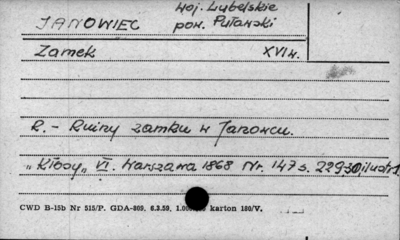 woj. Lubelskie
JANOWIEC pow. Puławski
Zamek XVI w.
R. - Ruiny zamku w Janowcu.
"Kłosy" VI. Warszawa 1868 Nr. 147 s. 229-30, ilustr.
CWD B-15b Nr 515/P. GDA-809. 6.3.59. karton 180/V.